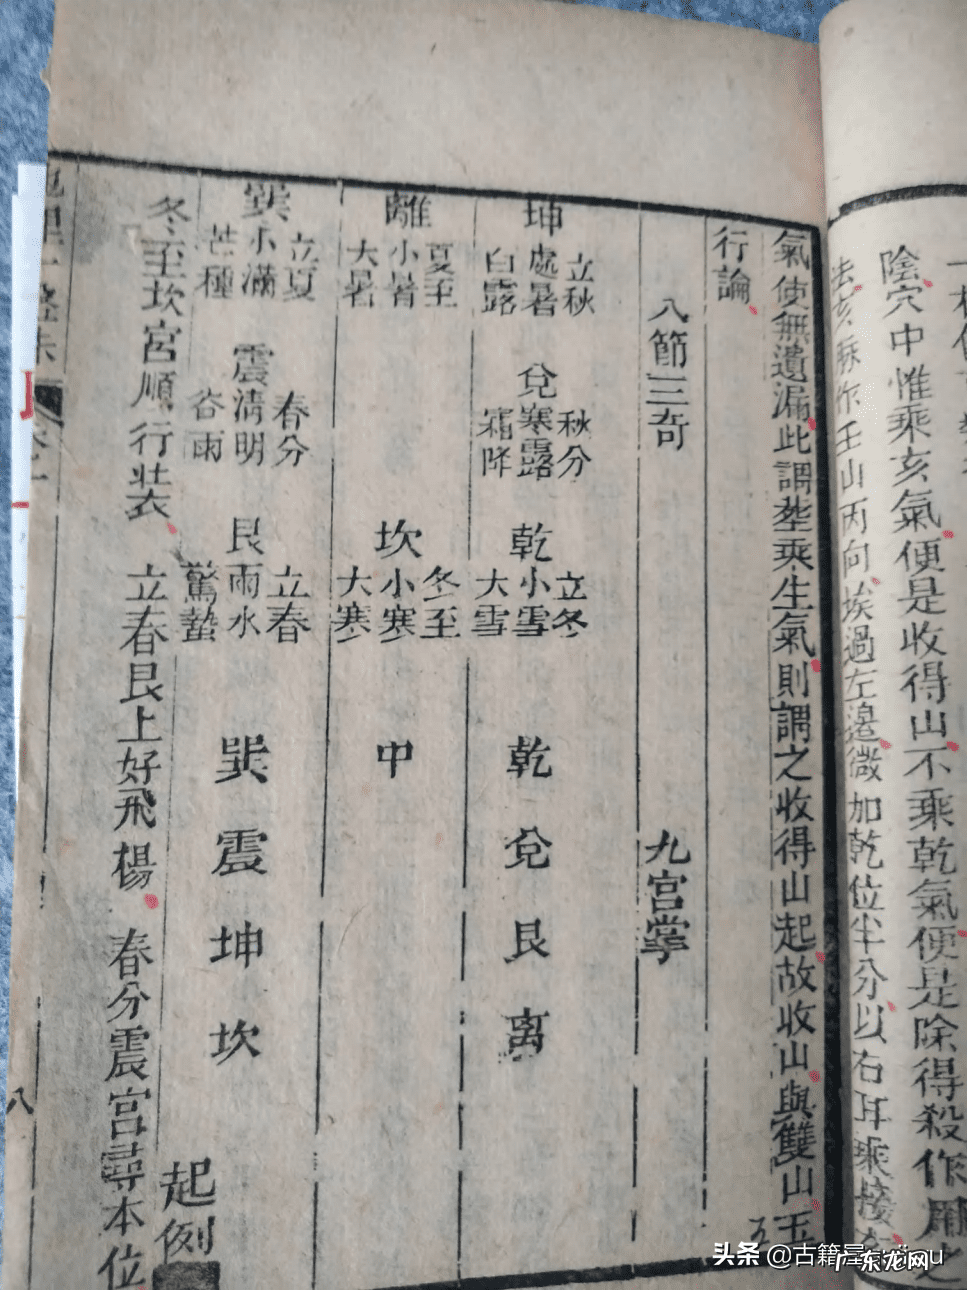 陰穴中惟乘亥氣便是收得山不乘乾氣便是除得殺作用之
壬山丙向挨過左邊微加乾位半分以右耳乘接
氣使無遺漏此謂塟乘生氣則謂之收得山起故收山與雙山五
行論
八節三奇 九宮掌
坤 立秋 處暑 白露
兌 秋分 寒露 霜降
乾 立冬 小雪 大雪
乾兌艮离
離 夏至 小暑 大暑
坎 冬至 小寒 大寒
中
巽 立夏 小滿 芒種
震 春分 清明 谷雨
艮 立春 雨水 驚蟄
巽震坤坎
起例
冬至坎宮順行裝 立春艮上好飛楊 春分震宮尋本位
八
头条 @古籍屋
广东龙网